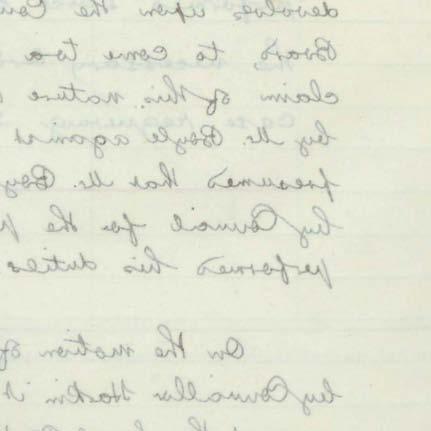 devolves upon the Cou
Board to come to a
claim of this nature
by Mr. Boyle against
presumed that Mr. Boy
by Council for the p
performed his duties
On the motion of
by Councillor it